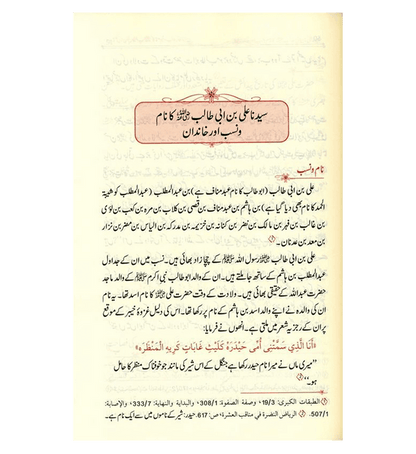 سیدنا علی بن ابی طالب رضی اللہ عنہ کا نام
ونسب اور خاندان
نام و نسب
علی بن ابی طالب (ابوطالب کا نام عبدمناف ہے) بن عبدالمطلب (عبدالمطلب کو شیبۃ
الحمد کا نام بھی دیا گیا ہے) بن ہاشم بن عبدمناف بن قصی بن کلاب بن مرہ بن کعب بن لؤی
بن غالب بن فہر بن مالک بن نضر بن کنانہ بن خزیمہ بن مدرکہ بن الیاس بن مضر بن نزار
بن معد بن عدنان۔
علی بن ابی طالب رسول اللہ ﷺ کے چچا زاد بھائی ہیں۔ نسب میں ان کے جداول
عبدالمطلب بن ہاشم کے ساتھ جا ملتے ہیں۔ ان کے والد ابوطالب نبی اکرم ﷺ کے والد ماجد
حضرت عبداللہ کے حقیقی بھائی ہیں۔ ولادت کے وقت حضرت علی کا نام اسد تھا۔ یہ نام
ان کی والدہ نے اپنے والد اسد بن ہاشم کے نام پر رکھا تھا۔ اس کی دلیل غزوۂ خیبر کے موقع
پر ان کے رجزیہ شعر میں ملتی ہے۔ انھوں نے فرمایا:
«أَنَا الَّذِي سَمَّتْنِي أُمِّي حَيْدَرَه كَلَيْثِ غَابَاتٍ كَرِيهِ الْمَنْظَرَه»
”میری ماں نے میرا نام حیدر رکھا ہے جنگل کے اس شیر کی مانند جو خوفناک منظر کا حامل
ہو۔“
الطبقات الكبرى: 19/3، وصفة الصفوة: 308/1، والبداية والنهاية: 333/7، والإصابة:
507/1. الرياض النضرة في مناقب العشرة؛ ص: 617. حیدر: شیر کے ناموں میں سے ایک نام ہے۔